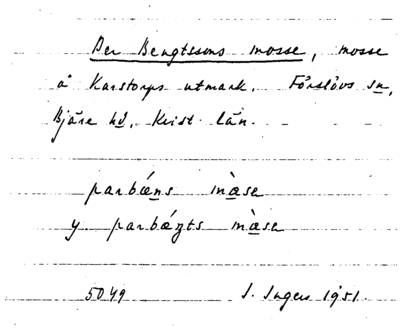 Per Bengtssons mosse, mosse
å Karstorps utmark. Förslövs sn,
Bjäre hd, Krist. län.
parbæns màse
y parbæŋts màse
5049 I. Ingers 1951.